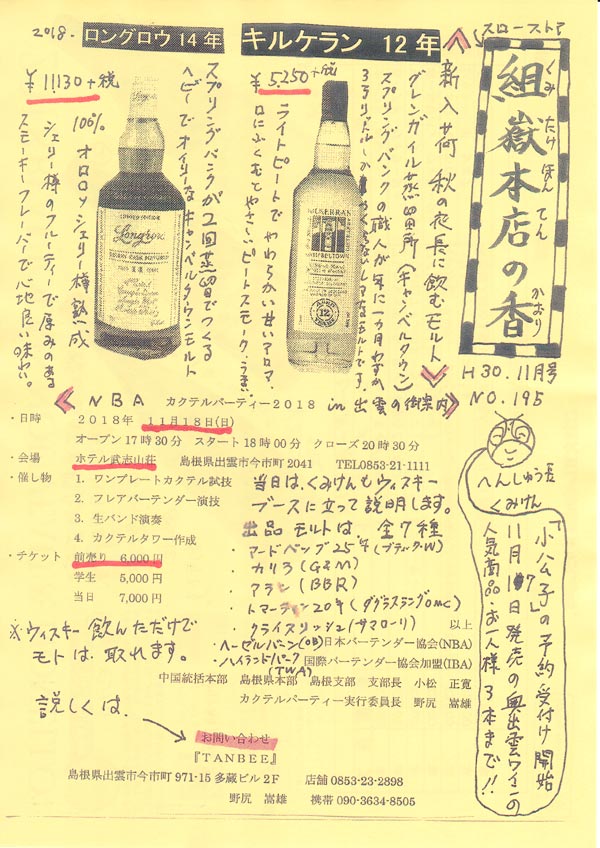 スローストア
組嶽本店の香
くみ たけ ほん てん かおり
H30.11月号
NO.195
2018.
ロングロウ 14年
キルケラン 12年
¥11130+税
¥5.250+税
新入荷 秋の夜長に飲むモルト
グレンガイル蒸留所(キャンベルタウン)
スプリングバンクの職人が年に一カ月わずか
ライトピートでやわらかい甘いアロマ。
口にふくむとやさしいピートスモーク、うまい
スプリングバンクが2回蒸留でつくる
ヘビーでオイリーなキャンベルタウンモルト
100% オロロソシェリー樽熟成
シェリー樽のフルーティーで厚みのある
スモーキーフレーバーで心地良い味わい。
Longrow
KILKERRAN
12
《NBA カクテルパーティー2018 in 出雲の御案内》
・日時 2018年 11月18日(日)
オープン17時30分 スタート18時00分 クローズ20時30分
・会場 ホテル武志山荘 島根県出雲市今市町2041 TEL0853-21-1111
・催し物 1. ワンプレートカクテル試技
2. フレアバーテンダー演技
3. 生バンド演奏
4. カクテルタワー作成
・チケット 前売り 6,000円
学生 5,000円
当日 7,000円
当日は、くみけんもウィスキー
ブースに立って説明します。
出品モルトは 全7種
・アードベッグ25年(ブラック・W)
・カリラ(G&M)
・アラン(BBR)
・トマーティン20年(ダグラスラングOMC)
・クライヌリッシュ(サマローリ) 以上
・ヘーゼルバーン(OB)
・ハイランドパーク(TWA)
日本バーテンダー協会(NBA)
国際バーテンダー協会加盟(IBA)
中国統括本部 島根県本部 島根支部 支部長 小松 正寛
カクテルパーティー実行委員長 野尻 嵩雄
※ウィスキー飲んだだけで
モトは、取れます。
説しくは、
お問い合わせ
『TANBEE』
島根県出雲市今市町971-15 多蔵ビル2F 店舗 0853-23-2898
野尻 嵩雄 携帯 090-3634-8505
へんしゅう長
くみけん
「小公子」の予約受付け開始
11月17日発売の奥出雲ワインの
人気商品・お一人様3本まで!!